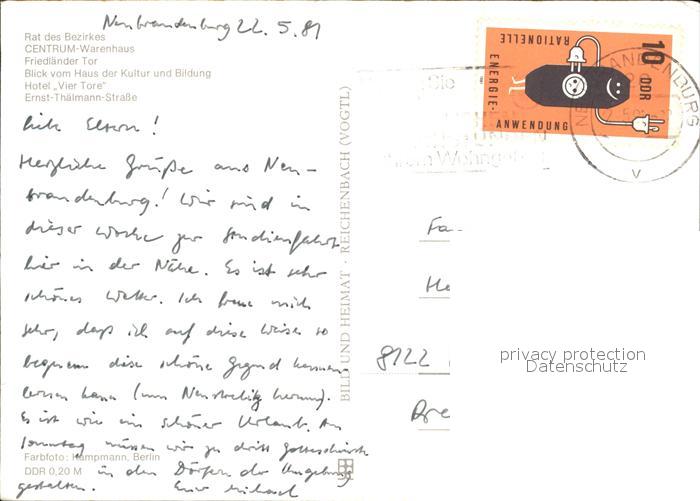 Neubrandenburg 22. 5. 81
Rat des Bezirkes
CENTRUM-Warenhaus
Friedländer Tor
Blick vom Haus der Kultur und Bildung
Hotel „Vier Tore"
Ernst-Thälmann-Straße
Liebe Eltern!
Herzliche Grüße aus Neu-
brandenburg! Wir sind in
dieser Woche zur Studienfahrt
hier in der Nähe. Es ist sehr
schönes Wetter. Ich freue mich
sehr, daß ich auf diese Weise so
bequem diese schöne Gegend kennen-
lernen kann (um Neustrelitz herum).
Es ist wie ein schöner Urlaub. Am
Sonntag müssen wir zu dritt Gottesdienste
in den Dörfern der Umgebung
gestalten. Euer Michael
Farbfoto: Kampmann, Berlin
DDR 0,20 M
BILD UND HEIMAT · REICHENBACH (VOGTL)
RATIONELLE
ENERGIE-
ANWENDUNG
10
DDR
Sie
Wohngebiet
NEUBRANDENBURG
V
Fa
He
8122
Dre
privacy protection
Datenschutz